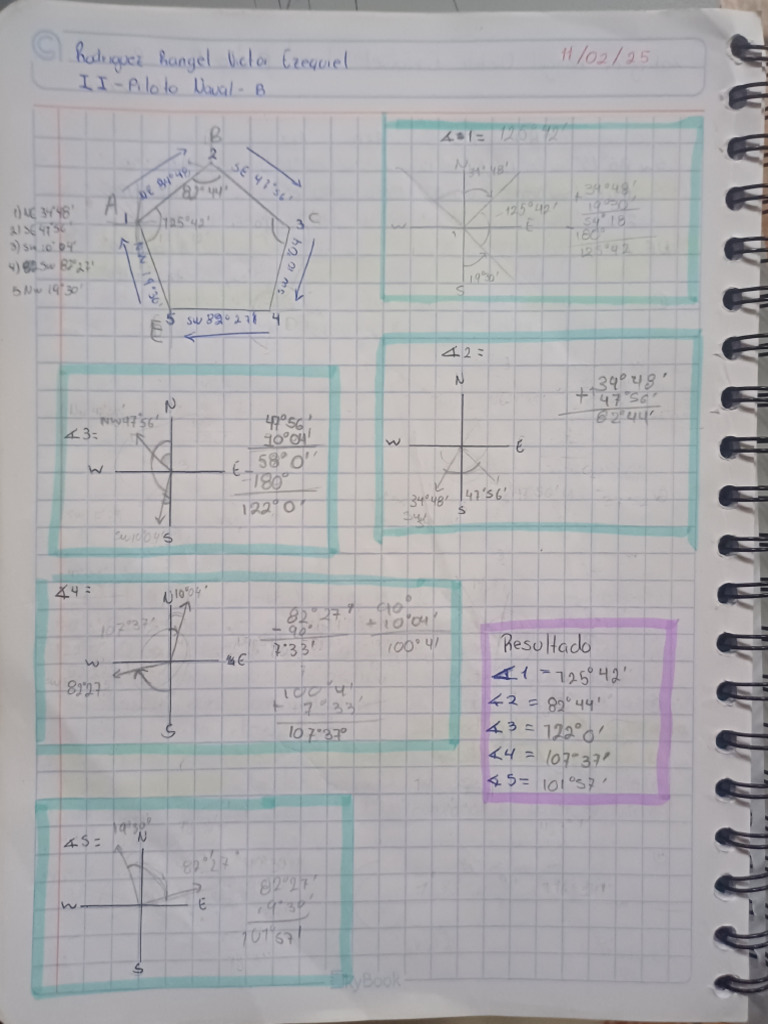 Rodriguez Rangel Victor Ezequiel
11/02/25
II-Piloto Naval-B
B
2
NE 34°48'
SE 47°56'
82°44'
A
1
125°42'
C
3
1) NE 34°48'
2) SE 47°56'
3) SW 10°04'
4) SW 82°27'
5 NW 19°30'
NW 19°30'
SW 10°04
E
5
SW 82°27'
4
∡1= 125°42'
N
34°48'
125°42'
W
E
S
19°30'
+ 34°48'
19°30'
54°18
- 180°
125°42
∡2=
N
W
E
S
34°48'
47°56'
+ 34°48'
47°56'
82°44'
∡3=
N
NW47°56'
W
E
S
47°56'
10°04'
58°0''
-180°
122°0'
∡4=
N
10°04'
107°37'
W
E
82°27
S
82°27'
- 90°
7°33'
90°
+ 10°04'
100°4'
100°4'
+ 7°33'
107°37°
Resultado
∡1 = 125°42'
∡2 = 82°44'
∡3 = 122°0'
∡4 = 107°37'
∡5= 101°57'
∡5=
19°30'
N
82°27°
W
E
S
82°27'
19°30'
101°57'
RyBook